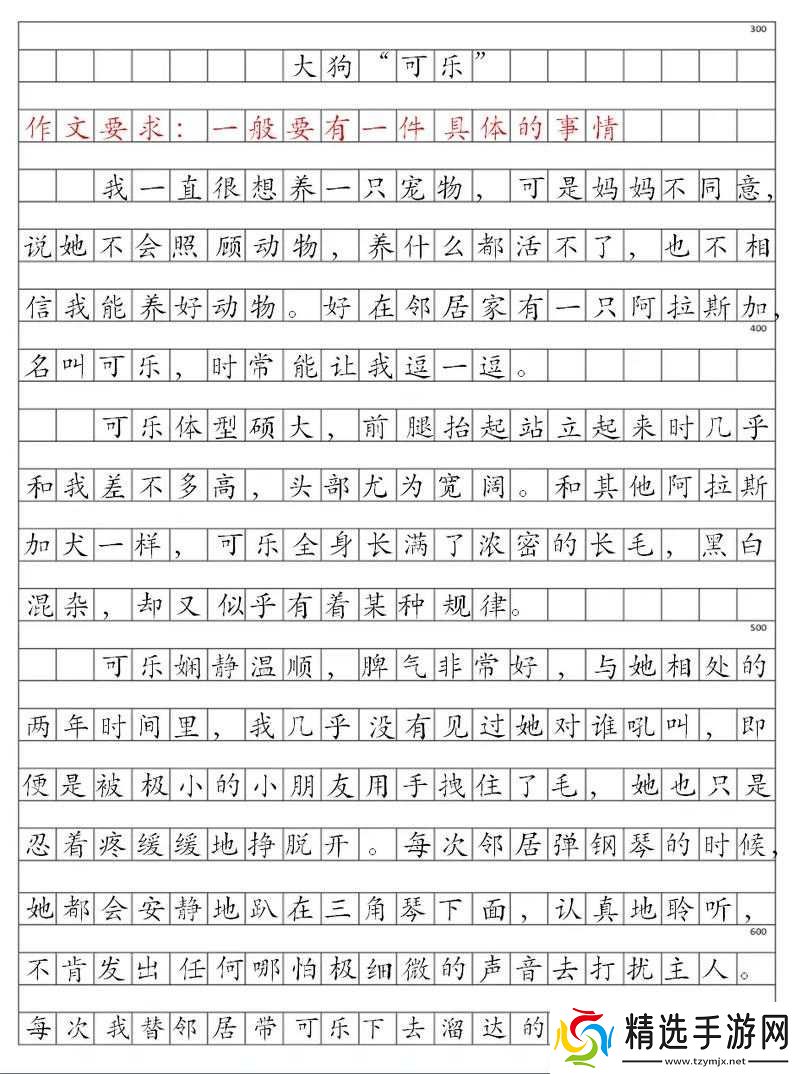 300
大狗“可乐”
作文要求：一般要有一件具体的事情
我一直很想养一只宠物，可是妈妈不同意，
说她不会照顾动物，养什么都活不了，也不相
信我能养好动物。好在邻居家有一只阿拉斯加，
400
名叫可乐，时常能让我逗一逗。
可乐体型硕大，前腿抬起站立起来时几乎
和我差不多高，头部尤为宽阔。和其他阿拉斯
加犬一样，可乐全身长满了浓密的长毛，黑白
混杂，却又似乎有着某种规律。
500
可乐娴静温顺，脾气非常好，与她相处的
两年时间里，我几乎没有见过她对谁吼叫，即
便是被极小的小朋友用手拽住了毛，她也只是
忍着疼缓缓地挣脱开。每次邻居弹钢琴的时候，
她都会安静地趴在三角琴下面，认真地聆听，
600
不肯发出任何哪怕极细微的声音去打扰主人。
每次我替邻居带可乐下去溜达的
精选手游网
www.tzymjx.net